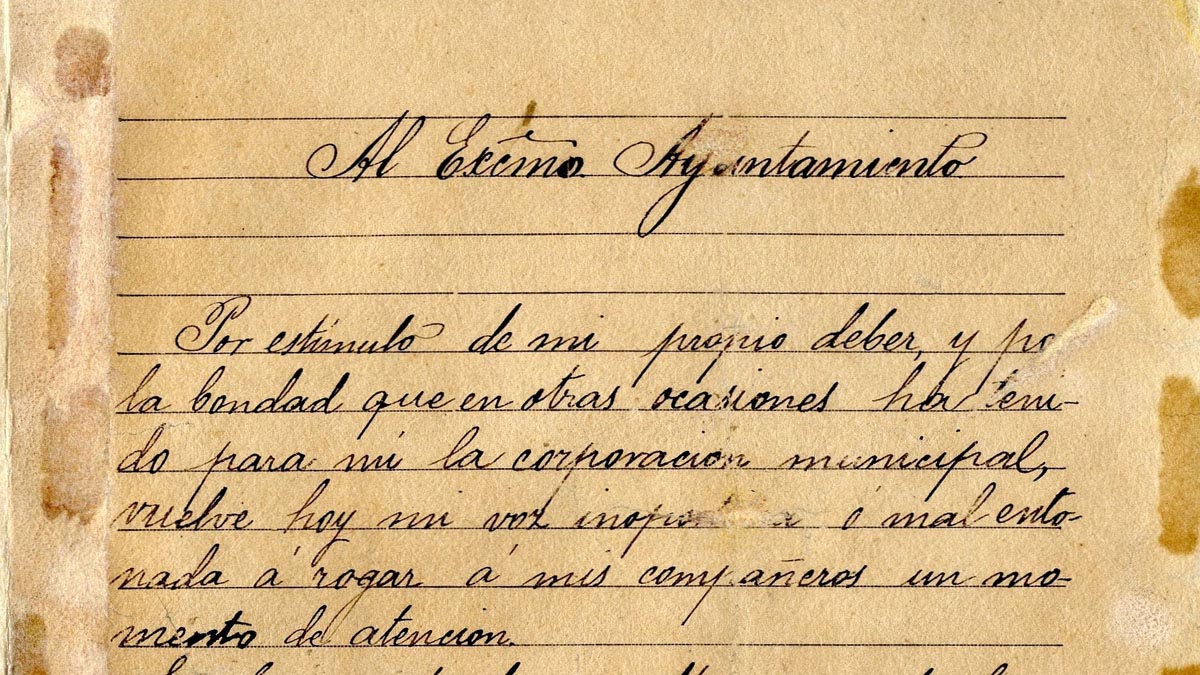 Al Excmo Ayuntamiento
Por estímulo de mi propio deber, y po
la bondad que en otras ocasiones ha teni-
do para mi la corporacion municipal,
vuelve hoy mi voz ó mal ento-
nada á rogar á mis compañeros un mo-
mento de atencion.